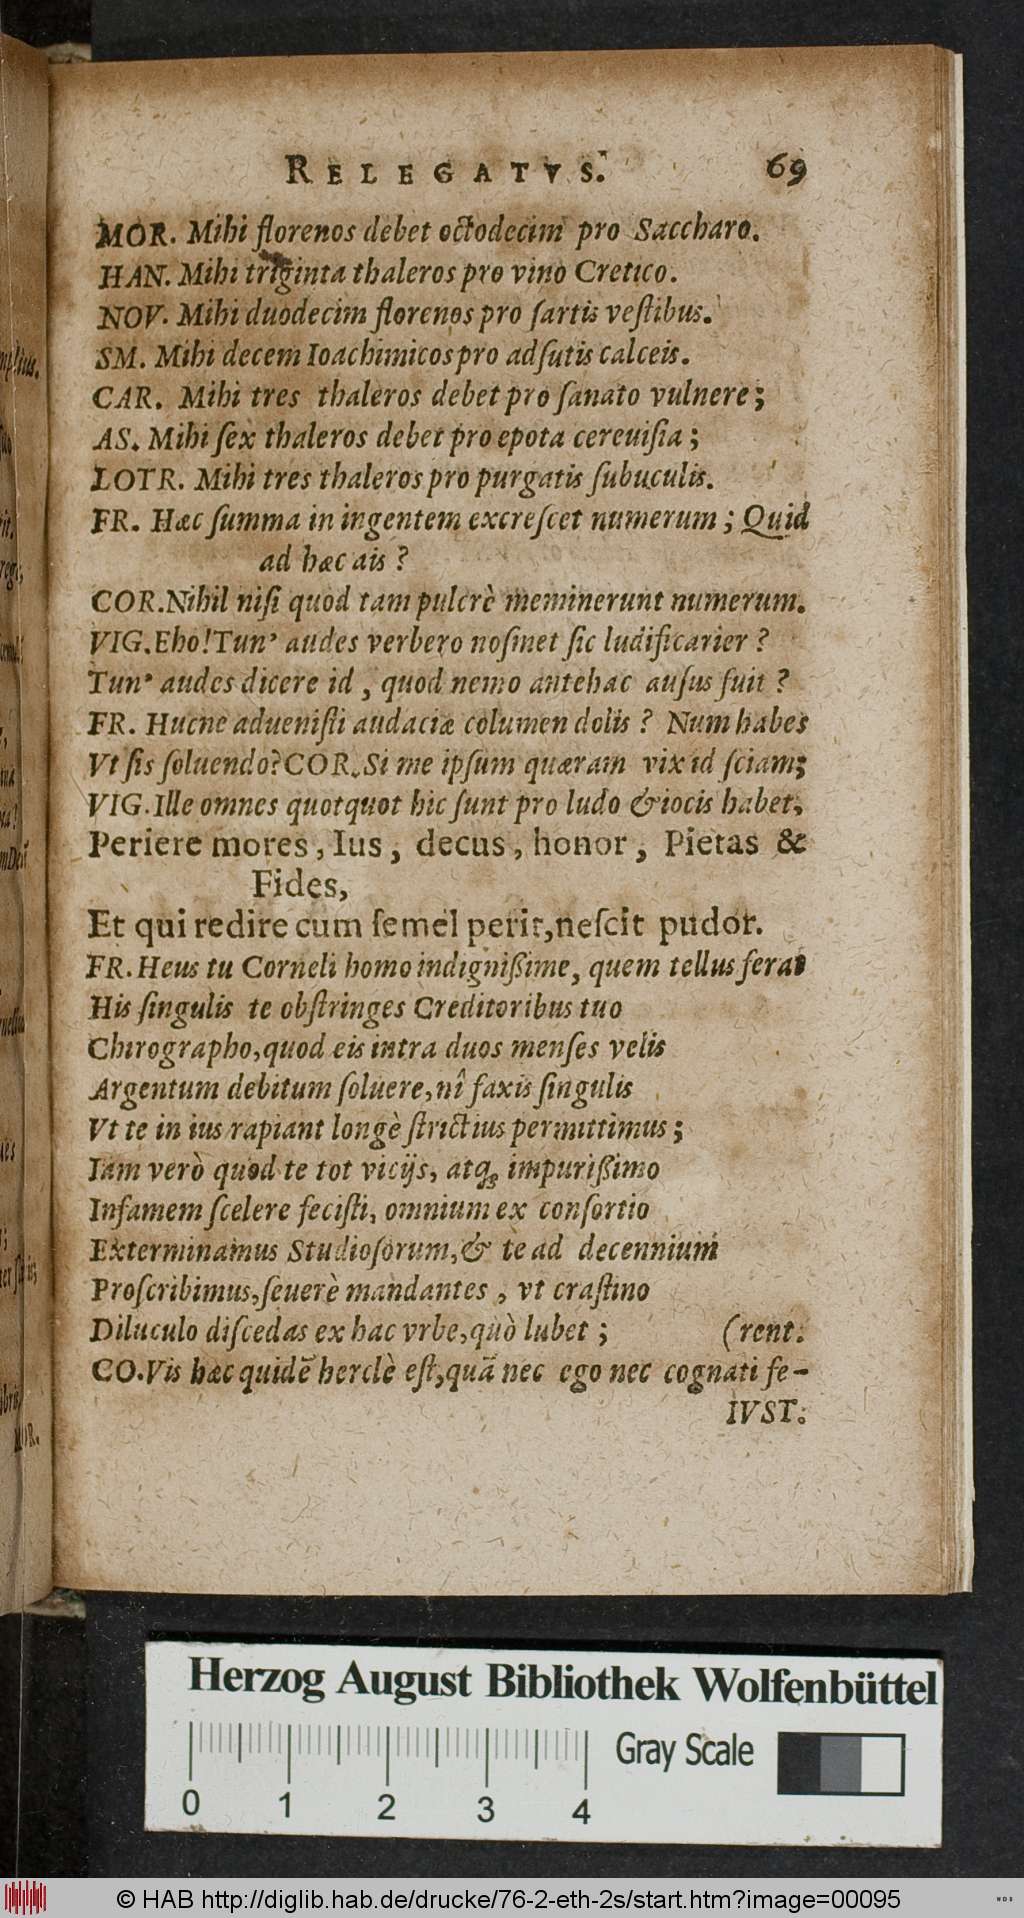 RELEGATVS. 69
MOR. Mihi florenos debet octodecim pro Saccharo.
HAN. Mihi triginta thaleros pro vino Cretico.
NOV. Mihi duodecim florenos pro ſartis veſtibus.
SM. Mihi decem Ioachimicos pro adſutis calceis.
CAR. Mihi tres thaleros debet pro ſanato vulnere;
AS. Mihi ſex thaleros debet pro epota cereuiſia;
LOTR. Mihi tres thaleros pro purgatis ſubuculis.
FR. Hæc ſumma in ingentem excreſcet numerum; Quid
ad hæc ais?
COR. Nihil niſi quod tam pulcrè meminerunt numerum.
VIG. Eho! Tun' audes verbero noſmet ſic ludificarier?
Tun' audes dicere id, quod nemo antehac auſus fuit?
FR. Hucne adueniſti audaciæ columen dolis? Num habes
Vt ſis ſoluendo? COR. Si me ipſum quæram vix id ſciam;
VIG. Ille omnes quotquot hic ſunt pro ludo & iocis habet,
Periere mores, Ius, decus, honor, Pietas &
Fides,
Et qui redire cum ſemel perit, neſcit pudor.
FR. Heus tu Corneli homo indignißime, quem tellus ferat
His ſingulis te obſtringes Creditoribus tuo
Chirographo, quod eis intra duos menſes velis
Argentum debitum ſoluere, nî faxis ſingulis
Vt te in ius rapiant longè ſtrictius permittimus;
Iam verò quod te tot vicijs, atq; impurißimo
Infamem ſcelere feciſti, omnium ex conſortio
Exterminamus Studioſorum, & te ad decennium
Proſcribimus, ſeuerè mandantes, vt craſtino
Diluculo diſcedas ex hac vrbe, quò lubet; (rent.
CO. Vis hæc quidẽ herclè eſt, quã nec ego nec cognati fe-
IVST.
MOR.
Herzog August Bibliothek Wolfenbüttel
0 1 2 3 4 Gray Scale
© HAB http://diglib.hab.de/drucke/76-2-eth-2s/start.htm?image=00095